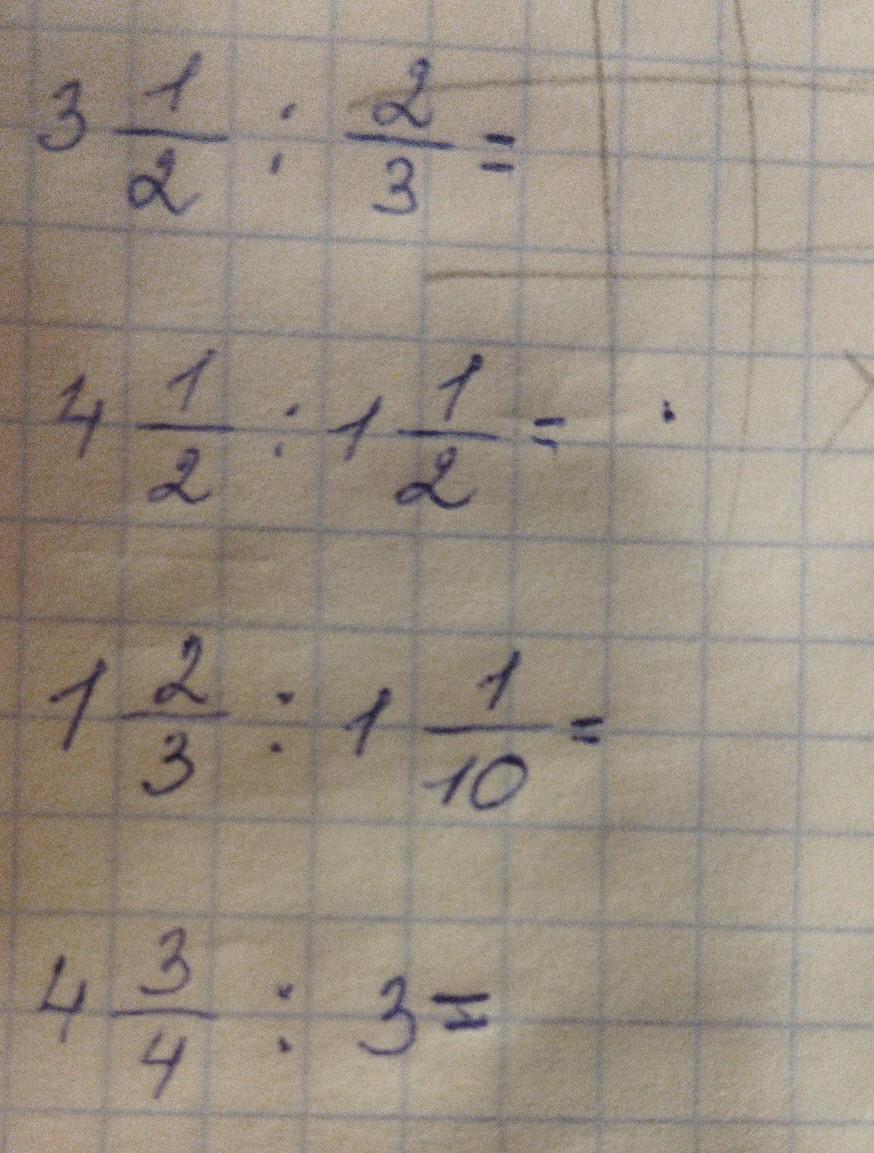 3 1/2 : 2/3 =
4 1/2 : 1 1/2 =
1 2/3 : 1 1/10 =
4 3/4 : 3 =